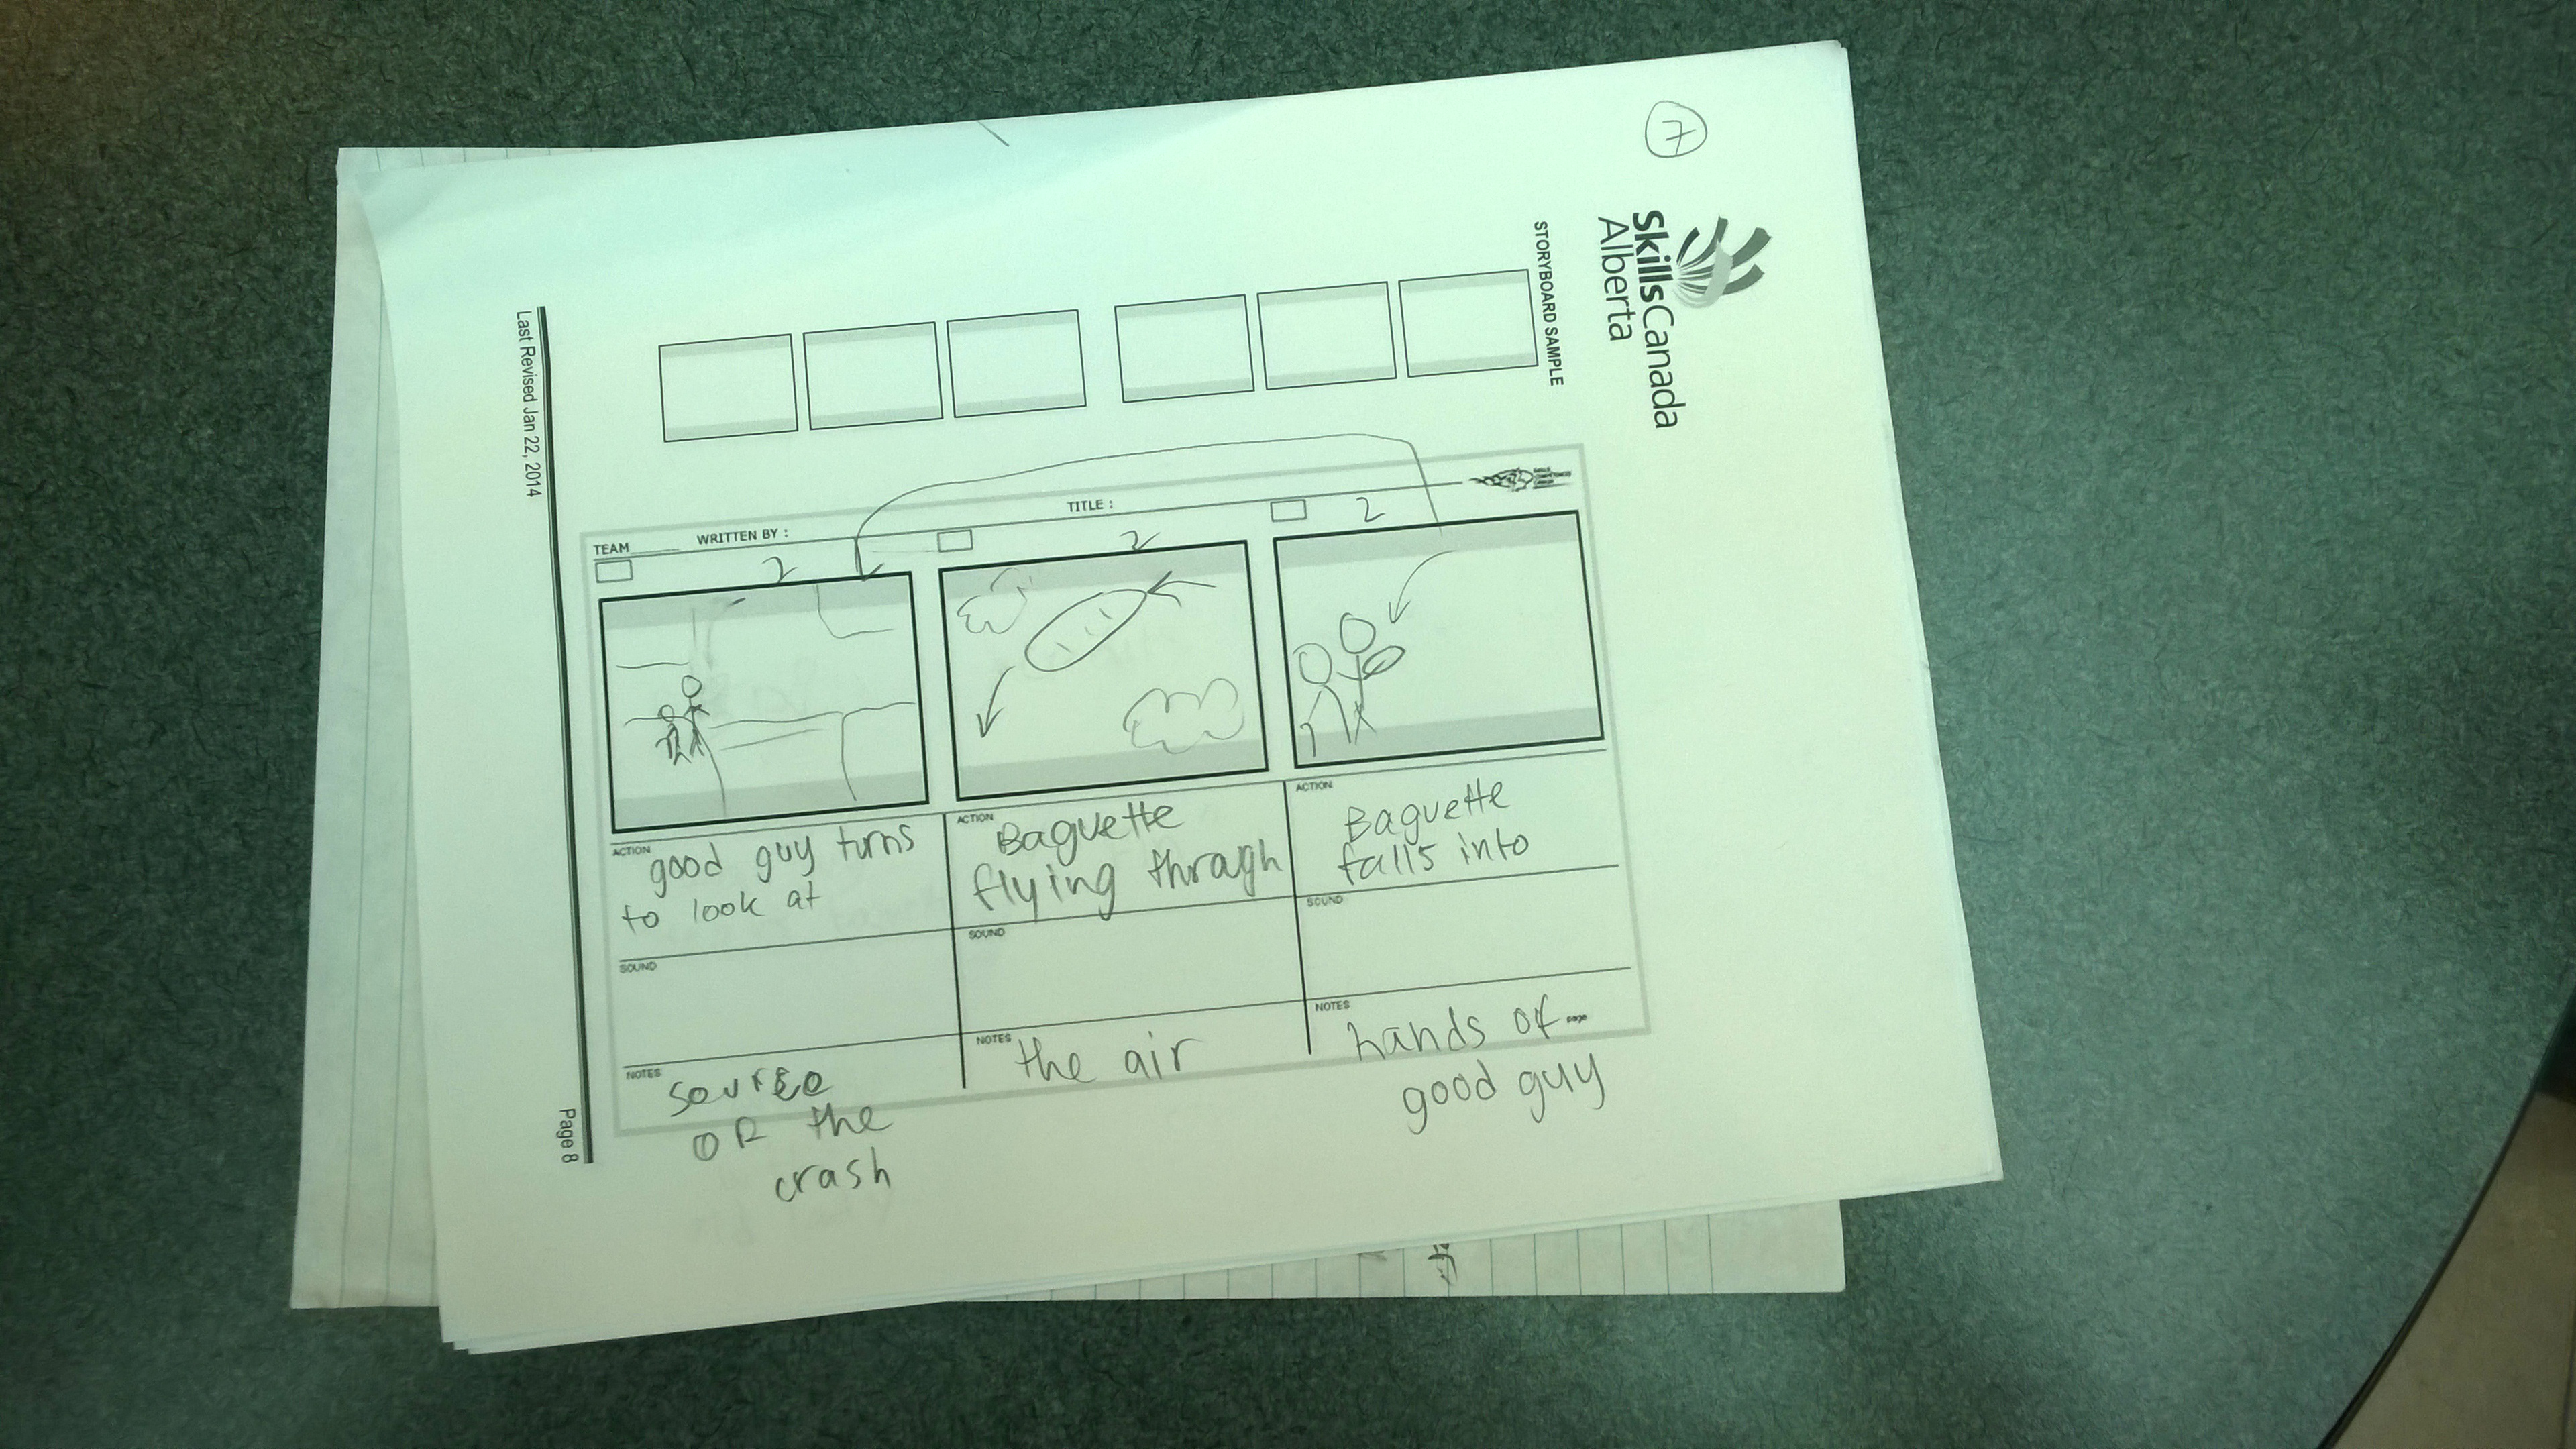 7
SkillsCanada
Alberta
STORYBOARD SAMPLE
TEAM
WRITTEN BY :
TITLE :
2
2
2
ACTION
good guy turns
to look at
SOUND
NOTES
source
OR the
crash
ACTION
Baguette
flying through
SOUND
NOTES
the air
ACTION
Baguette
falls into
SOUND
NOTES
hands of
page
good guy
Last Revised Jan 22, 2014
Page 8